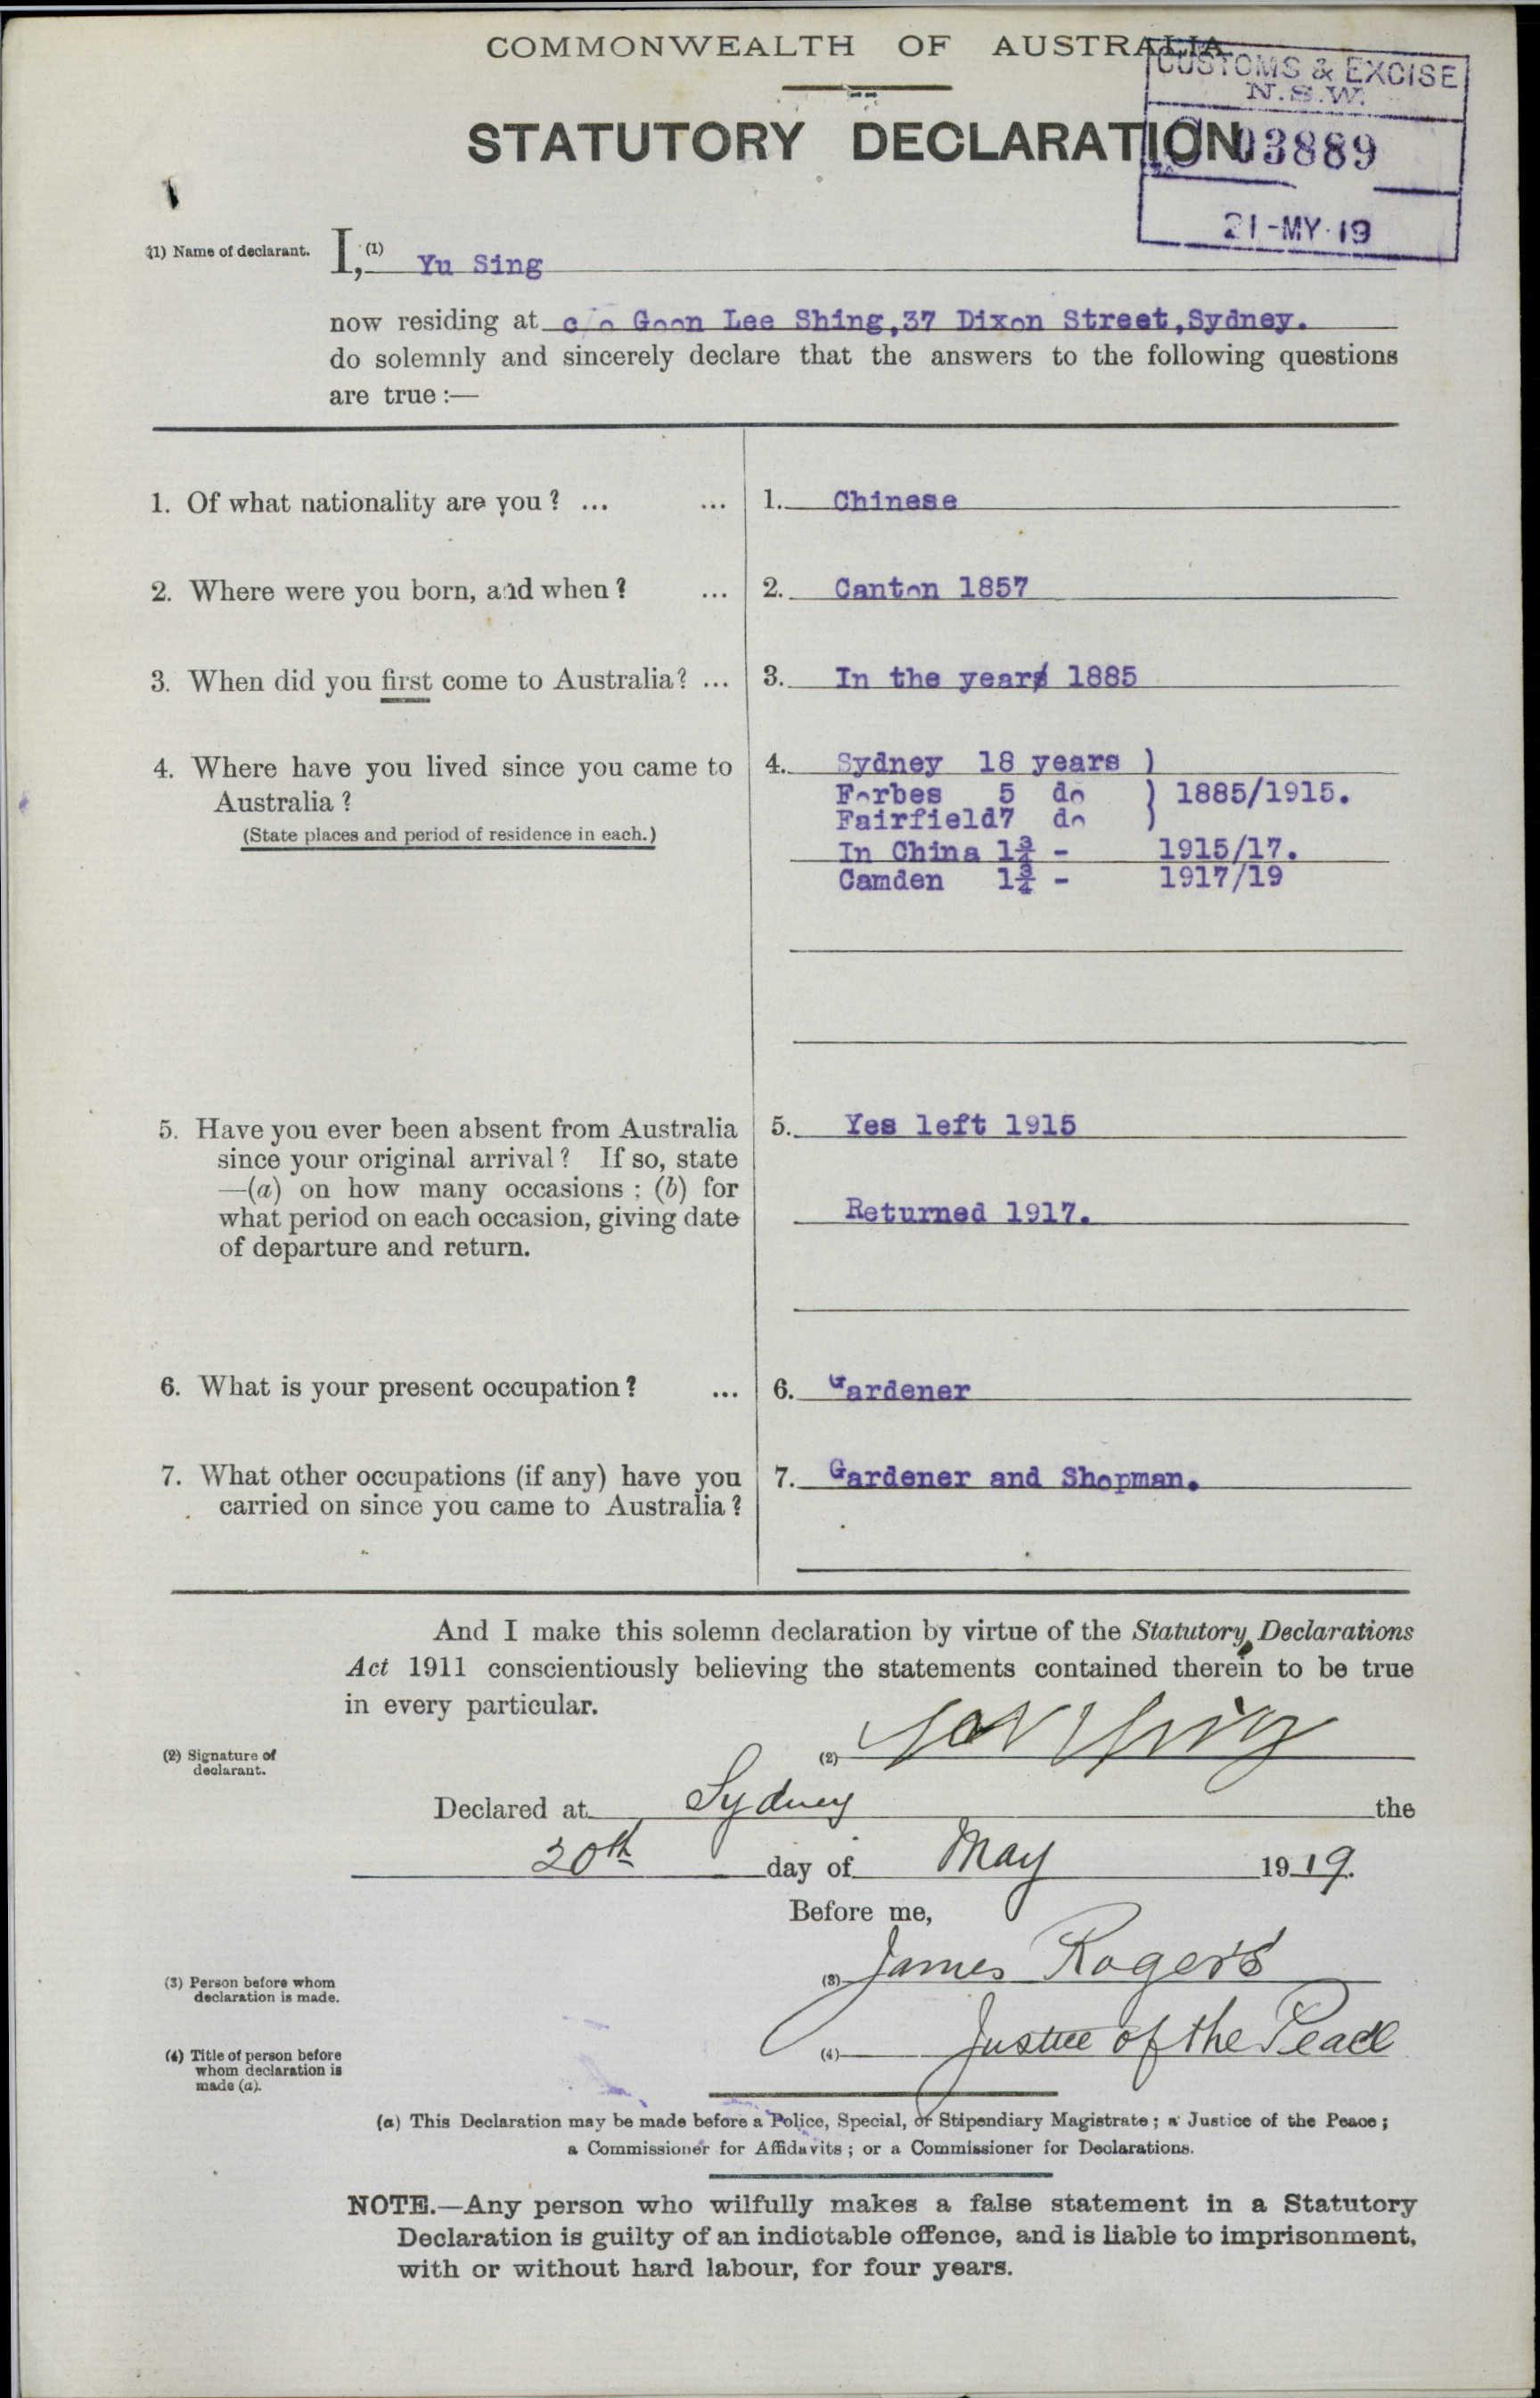 COMMONWEALTH OF AUSTRALIA.
CUSTOMS & EXCISE
N.S.W.
STATUTORY DECLARATION.
03889
21-MY-19
(1) Name of declarant. I,(1) Yu Sing
now residing at c/o Goon Lee Shing,37 Dixon Street,Sydney.
do solemnly and sincerely declare that the answers to the following questions
are true :—
1. Of what nationality are you ? ... ... 1. Chinese
2. Where were you born, and when ? ... 2. Canton 1857
3. When did you first come to Australia? ... 3. In the year 1885
4. Where have you lived since you came to 4. Sydney 18 years )
Australia ? Forbes 5 do ) 1885/1915.
Fairfield7 do )
(State places and period of residence in each.) In China 1¾ - 1915/17.
Camden 1¾ - 1917/19
5. Have you ever been absent from Australia 5. Yes left 1915
since your original arrival ? If so, state
—(a) on how many occasions ; (b) for
what period on each occasion, giving date Returned 1917.
of departure and return.
6. What is your present occupation ? ... 6. Gardener
7. What other occupations (if any) have you 7. Gardener and Shopman.
carried on since you came to Australia ?
And I make this solemn declaration by virtue of the Statutory Declarations
Act 1911 conscientiously believing the statements contained therein to be true
in every particular.
(2) Signature of (2)
declarant.
Declared at Sydney the
20th day of May 1919.
Before me,
(3) Person before whom (3) James Rogers
declaration is made.
(4) Title of person before (4) Justice of the Peace
whom declaration is
made (a).
(a) This Declaration may be made before a Police, Special, or Stipendiary Magistrate ; a Justice of the Peace ;
a Commissioner for Affidavits ; or a Commissioner for Declarations.
NOTE.—Any person who wilfully makes a false statement in a Statutory
Declaration is guilty of an indictable offence, and is liable to imprisonment,
with or without hard labour, for four years.